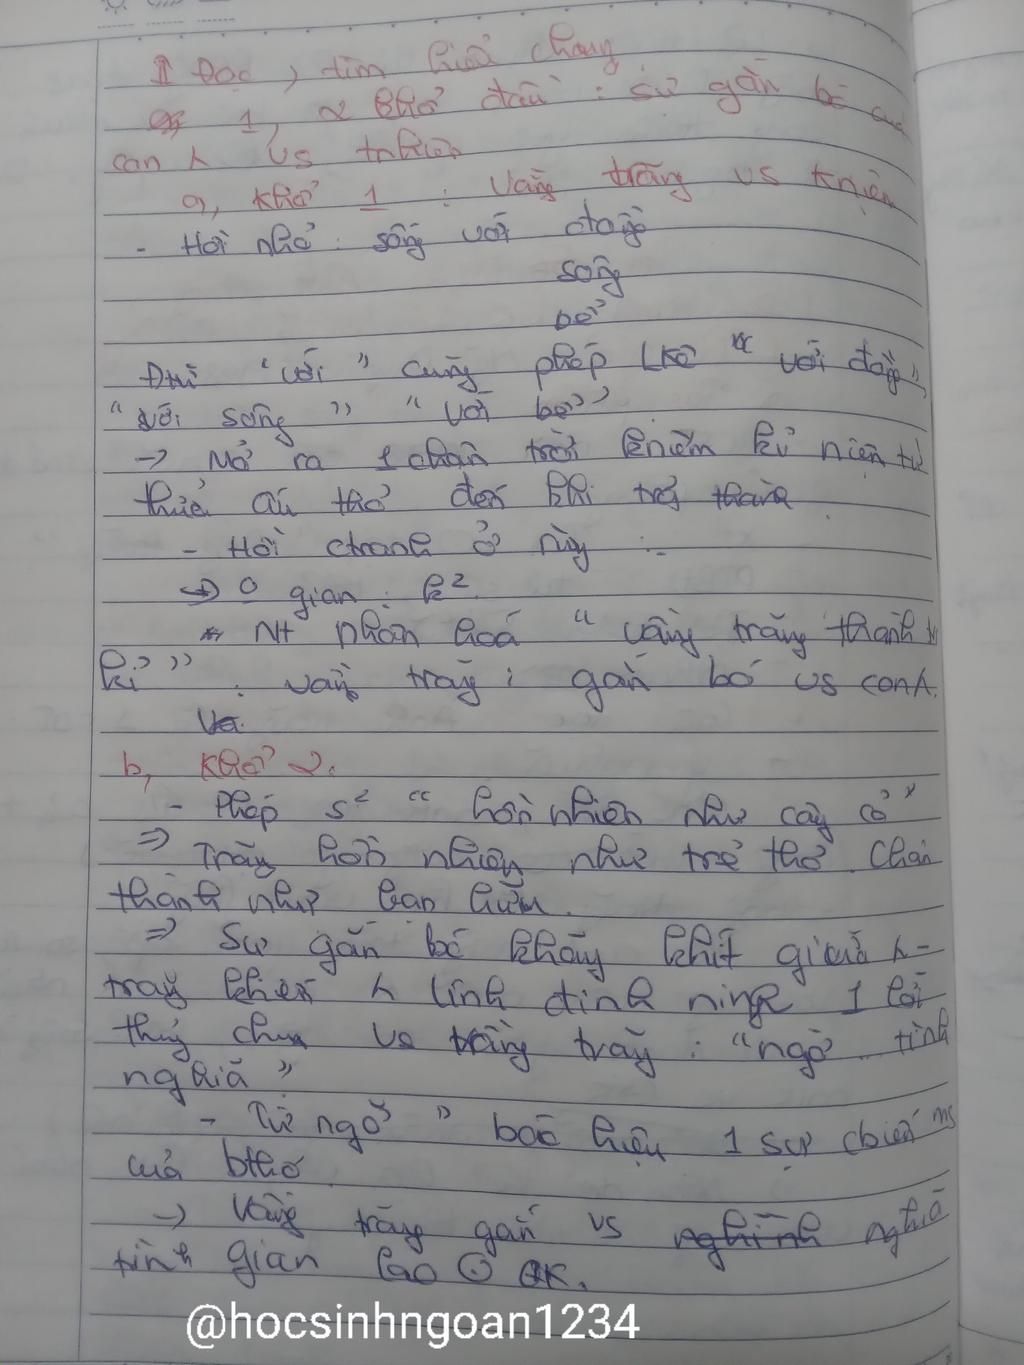 II Đọc, tìm hiểu chung
1, 2 khổ đầu : sự gắn bó của
con h vs tnhiên
a, Khổ 1 : vầng trăng vs tnhiên
- Hồi nhỏ : sống với đồng
sông
bể
Đtừ "với" cùng phép lkê "với đồng"
"với sông" "với bể"
-> Mở ra 1 chân trời kniệm kỉ niệm từ
thủa ấu thơ đến khi trg thành
- Hồi ctranh ở rừng :
-> 0 gian : k²
* NT nhân hoá "vầng trăng thành tri
kỉ" : vầng trăng : gắn bó vs conh.
b, Khổ 2.
- Phép s² "hồn nhiên như cây cỏ"
=> Trăng hồn nhiên như trẻ thơ. Chân
thành như bạn hữu.
=> Sự gắn bó khăng khít giữa h -
trăng khiến h linh đinh ninh 1 lời
thuỷ chung vs trăng : "ngỡ .. tình
nghĩa"
- Từ ngỡ" báo hiệu 1 sự cbiến
của bthơ
-> Vầng trăng gắn vs nghĩa
tình gian lao
@hocsinhngoan1234